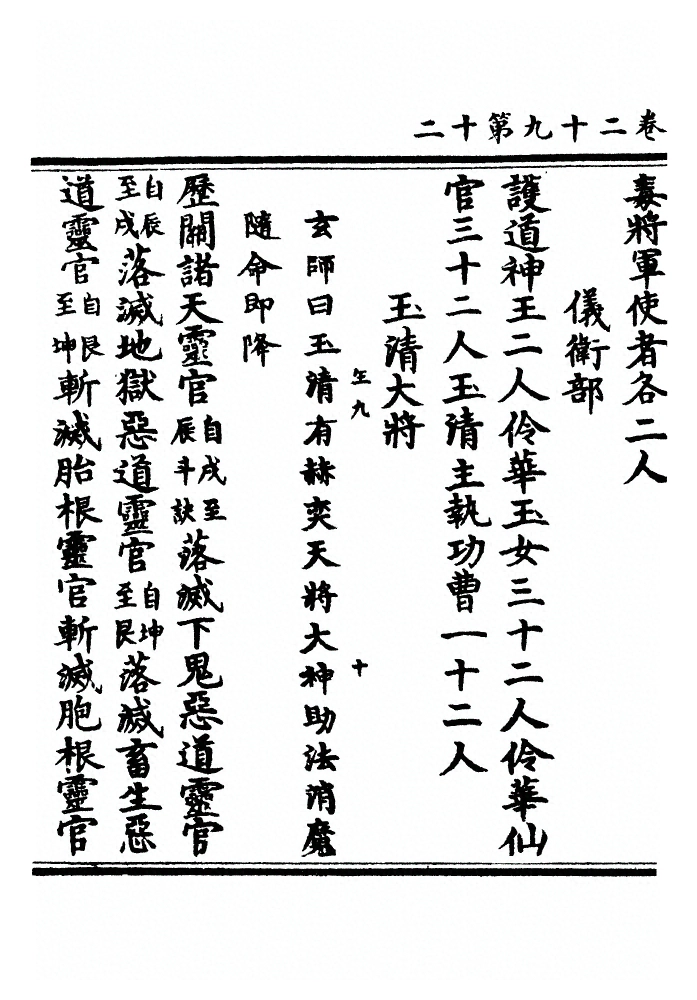 卷二十九第十二
毒將軍使者各二人
儀衛部
護道神王二人伶華玉女三十二人伶華仙
官三十二人玉清主執功曹一十二人
玉清大將
九 十
玄師曰玉清有赫奕天將大神助法消魔
隨命即降
歷關諸天靈官自戌至辰斗訣落滅下鬼惡道靈官
自辰至戌落滅地獄惡道靈官自坤至艮落滅畜生惡
道靈官自艮至坤斬滅胎根靈官斬滅胞根靈官